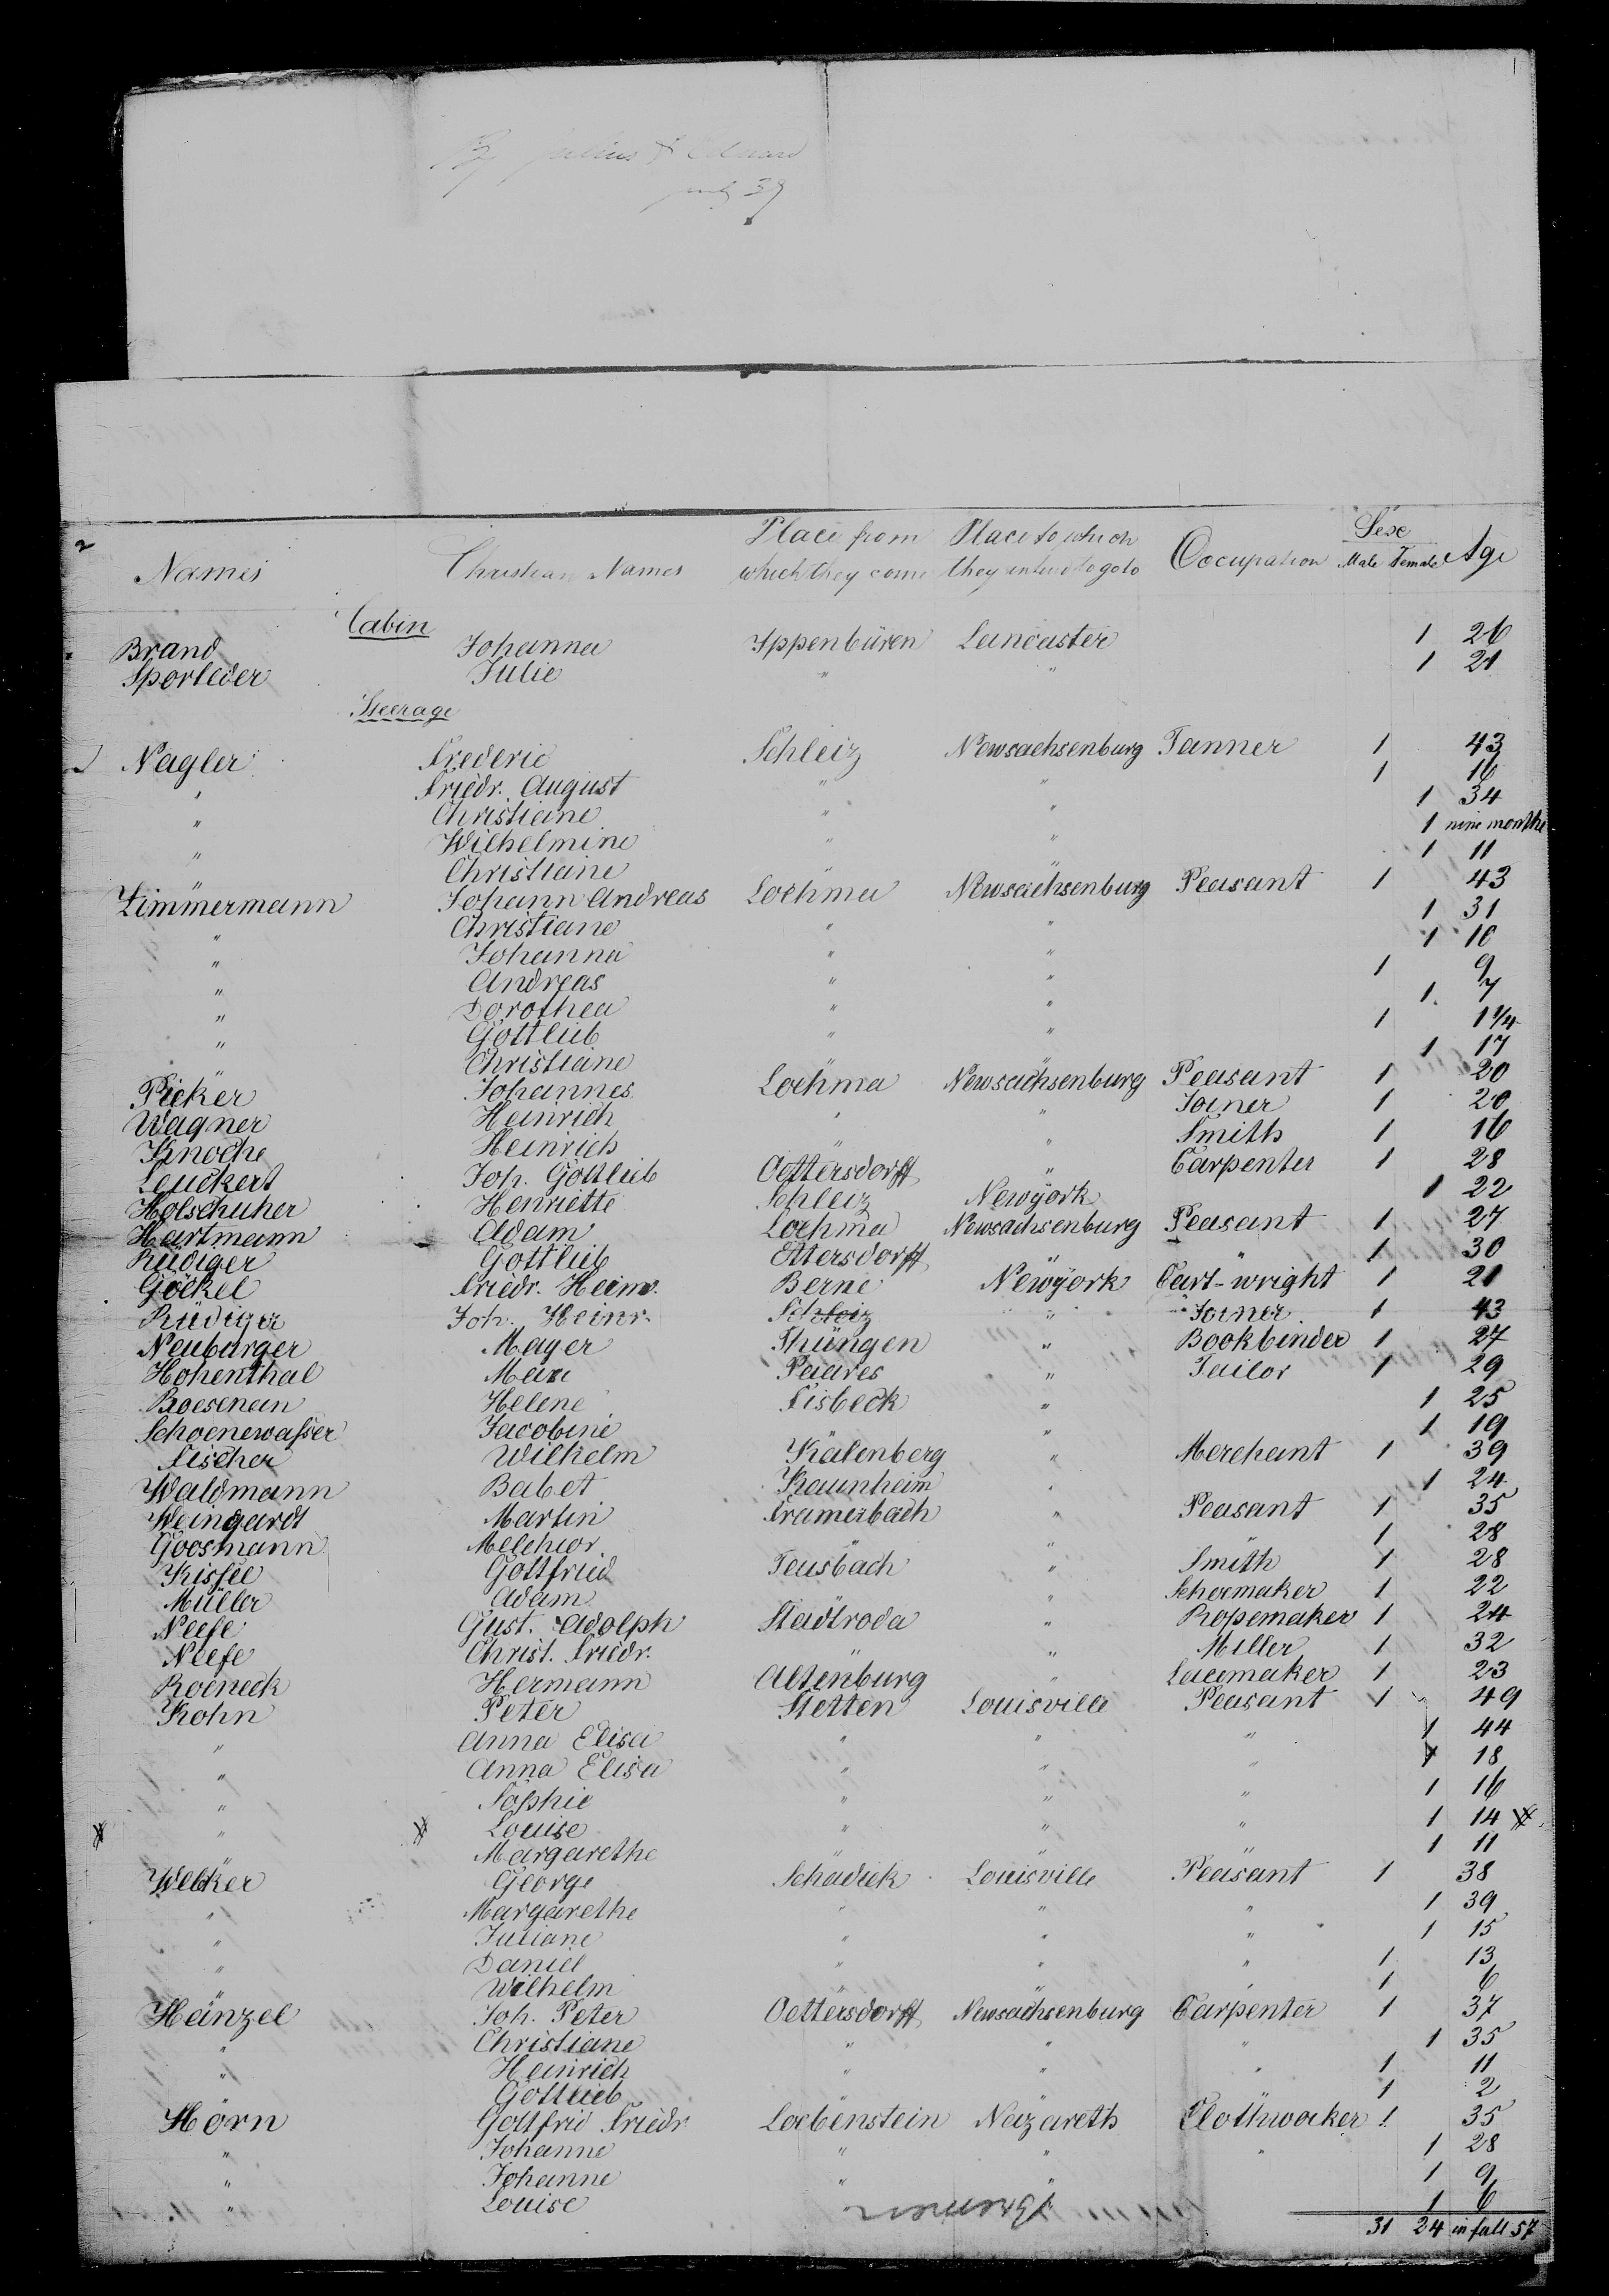 Julius & Eduard
july 39
2
Sexe
Names Christian Names Place from which they come Place to which they intend to go to Occupation Male Female Age
Cabin
Brand Johanna Ippenbüren Lancaster 1 26
Sporleder Julie " " 1 21
Steerage
Nagler Frederic Schleiz Newsachsenburg Tanner 1 43
" Friedr. August " " 1 16
" Christiane " " 1 34
" Wilhelmine " " 1 nine months
" Christiane " " 1 11
Zimmermann Johann Andreas Loehma Newsachsenburg Peasant 1 43
" Christiane " " 1 31
" Johanna " " 1 10
" Andreas " " 1 9
" Dorothea " " 1 7
" Gottlieb " " 1 1 1/4
" Christiane " " 1 17
Picker Johannes Loehma Newsachsenburg Peasant 1 20
Wagner Heinrich " " Joiner 1 20
Knoche Heinrich " " Smith 1 16
Leuckert Joh. Gottlieb Oettersdorff " Carpenter 1 28
Holschuher Henriette Schleiz Newÿork 1 22
Hartmann Adam Loehma Newsachsenburg Peasant 1 27
Rüdiger Gottlieb Ettersdorff " " 1 30
Göckel Friedr. Heinr. Berne Newÿork Cart-wright 1 21
Rüdiger Joh. Heinr. Schleiz " Joiner 1 43
Neuburger Mayer Thüngen " Bookbinder 1 27
Hohenthal Max Paares " Tailor 1 29
Boesenein Helene Lisbeck " 1 25
Schoenewasser Jacobine " 1 19
Fischer Wilhelm Kalenberg " Merchant 1 39
Waldmann Babet Kaunheim " 1 24
Weingardt Martin Cramerbach " Peasant 1 35
Goosmann Melchior " " " 1 28
Kissel Gottfried Teusbach " Smith 1 28
Müller Adam " Schoemaker 1 22
Neefe Gust. Adolph Stadtroda " Ropemaker 1 24
Neefe Christ. Friedr. " " Miller 1 32
Roeneck Hermann Altenburg " Lacemaker 1 23
Kohn Peter Stetten Louisville Peasant 1 49
" Anna Elisa " " " 1 44
" Anna Elisa " " " 1 18
" Sophie " " " 1 16
" Louise " " " 1 14
" Margarethe " " " 1 11
Welker George Schadeck Louisville Peasant 1 38
" Margarethe " " " 1 39
" Juliane " " " 1 15
" Daniel " " " 1 13
" Wilhelm " " " 1 6
Hänzel Joh. Peter Oettersdorff Newsachsenburg Carpenter 1 37
" Christiane " " " 1 35
" Heinrich " " " 1 11
" Gottlieb 1 2
Hörn Gottfrid Friedr Loebenstein Nazareth Clothwoker 1 35
" Johanne " " " 1 28
" Johanne " " 1 9
" Louise " " 1 6
Bremen
31 24 in full 57